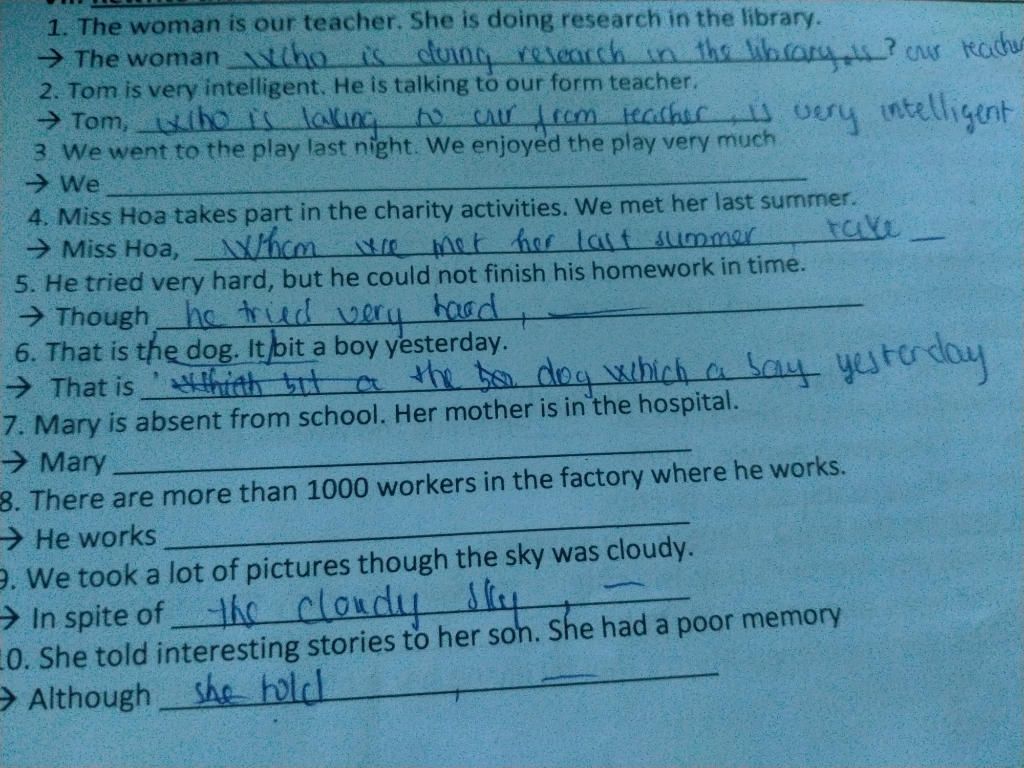 1. The woman is our teacher. She is doing research in the library.
→ The woman who is doing research in the library, is ? our teacher
2. Tom is very intelligent. He is talking to our form teacher.
→ Tom, who is taking to our from teacher, is very intelligent
3 We went to the play last night. We enjoyed the play very much
→ We
4. Miss Hoa takes part in the charity activities. We met her last summer.
→ Miss Hoa, whom we met her last summer, take
5. He tried very hard, but he could not finish his homework in time.
→ Though he tried very hard,
6. That is the dog. It bit a boy yesterday.
→ That is which bit a the dog which a boy yesterday
7. Mary is absent from school. Her mother is in the hospital.
→ Mary
8. There are more than 1000 workers in the factory where he works.
→ He works
9. We took a lot of pictures though the sky was cloudy.
→ In spite of the cloudy sky,
10. She told interesting stories to her son. She had a poor memory
→ Although she told ,